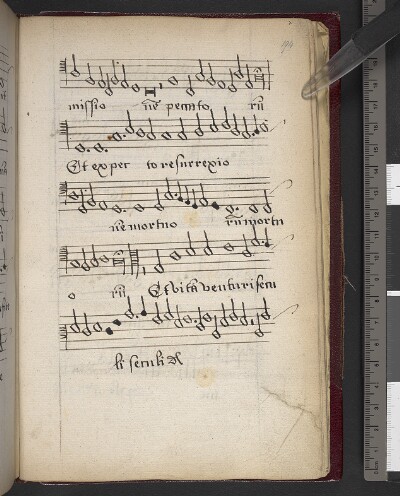 194
missio nē peccato rū
Et expec to resurrexio
nē mortuo rū mortu
o rū Et vitā venturi secu
li seculi A